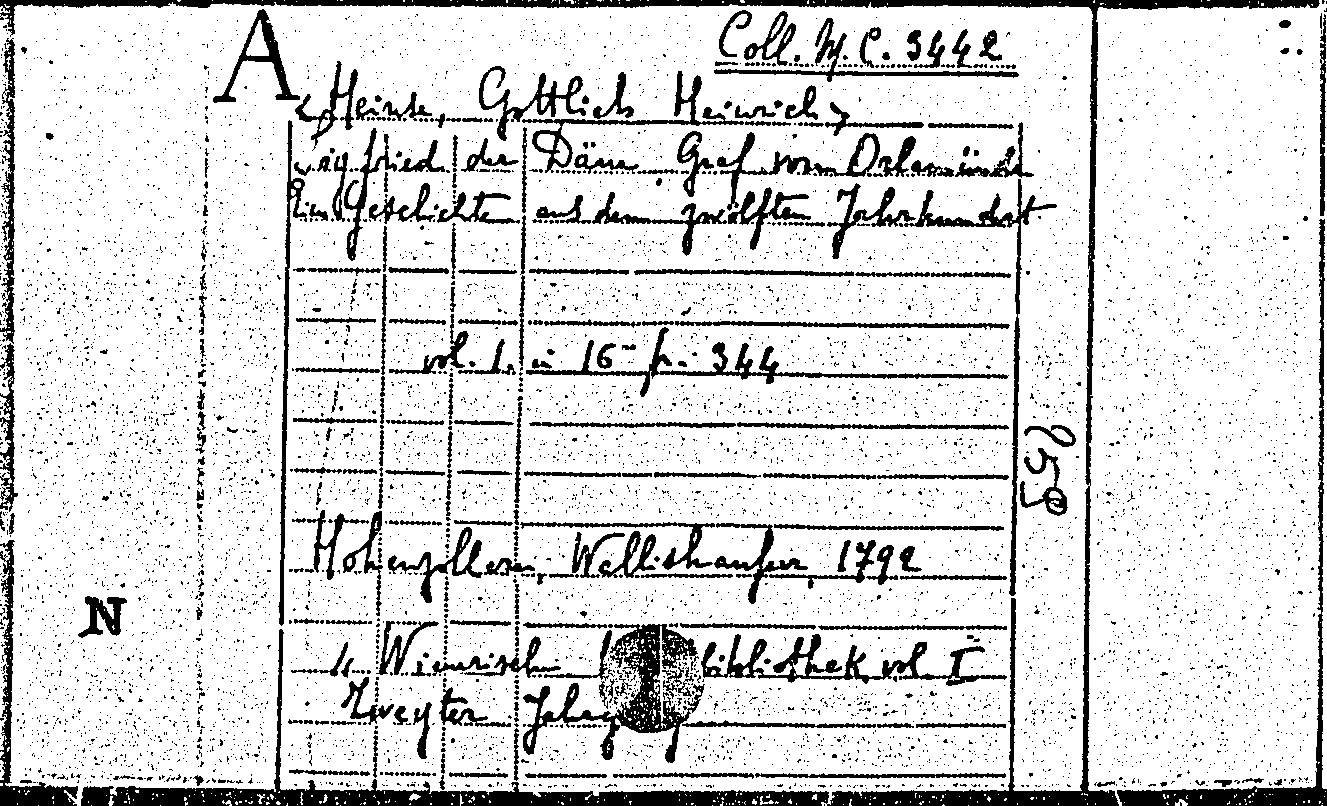 A
Coll. M. C. 3442
<Heinse, Gottlieb Heinrich>
Sigfried der Däne Graf von Orlamünde
Ein Geschichte aus dem zwölften Jahrhundert
vol. 1. in 16- p. 344
Hohenzollern, Wallishauser, 1792
N
" Wienerisch bibliothek, vol. I
Zweyter